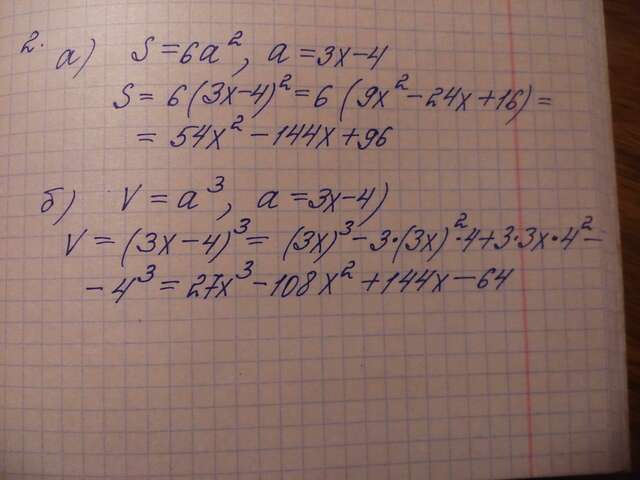 2. а) S = 6a², a = 3x-4
S = 6(3x-4)² = 6(9x² - 24x + 16) =
= 54x² - 144x + 96
б) V = a³, a = 3x-4)
V = (3x-4)³ = (3x)³ - 3·(3x)²·4 + 3·3x·4² -
- 4³ = 27x³ - 108x² + 144x - 64